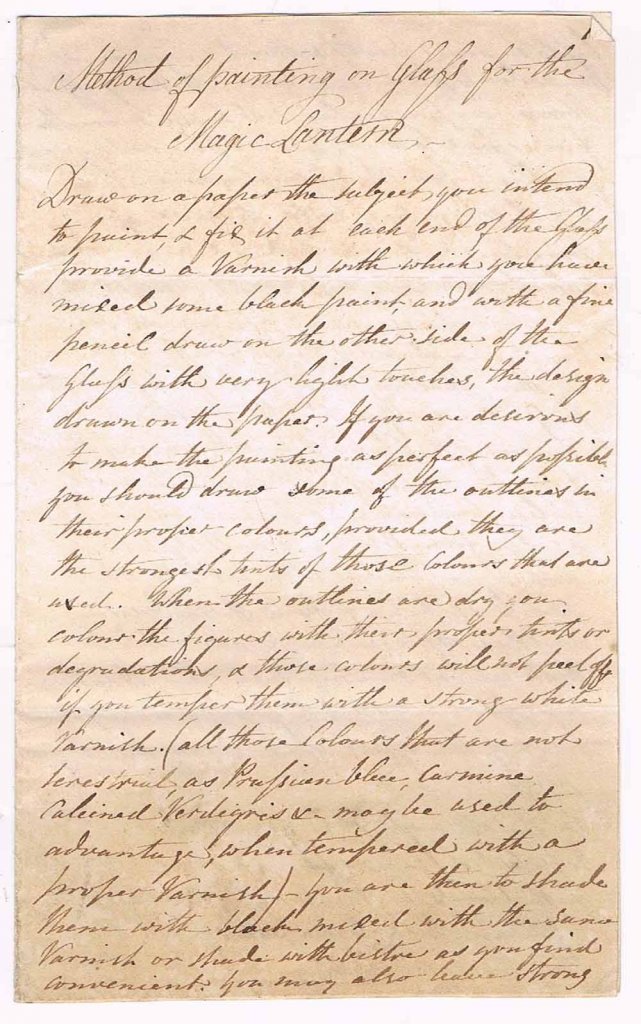 Method of painting on Glass for the
Magic Lantern.
Draw on a paper the subject you intend
to paint, & fix it at each end of the Glass
provide a Varnish with which you have
mixed some black paint, and with a fine
pencil draw on the other side of the
Glass with very light touches, the design
drawn on the paper. If you are desirous
to make the painting as perfect as possible
you should draw some of the outlines in
their proper colours, provided they are
the strongest tints of those Colours that are
used. When the outlines are dry you
colour the figures with their proper tints or
degradations, & those colours will not peel off
if you temper them with a strong white
Varnish. (all those Colours that are not
terestrial, as Prussian blue, Carmine
Calcined Verdigris &c may be used to
advantage, when tempered with a
proper Varnish) - you are then to shade
them with black mixed with the same
Varnish or shade with bistre as you find
convenient. you may also leave strong